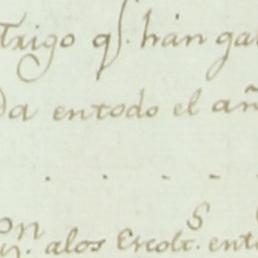 Trigo qͤ. hán ga
da entodo el añ
. . . . .
on. alos Escolr.s ent